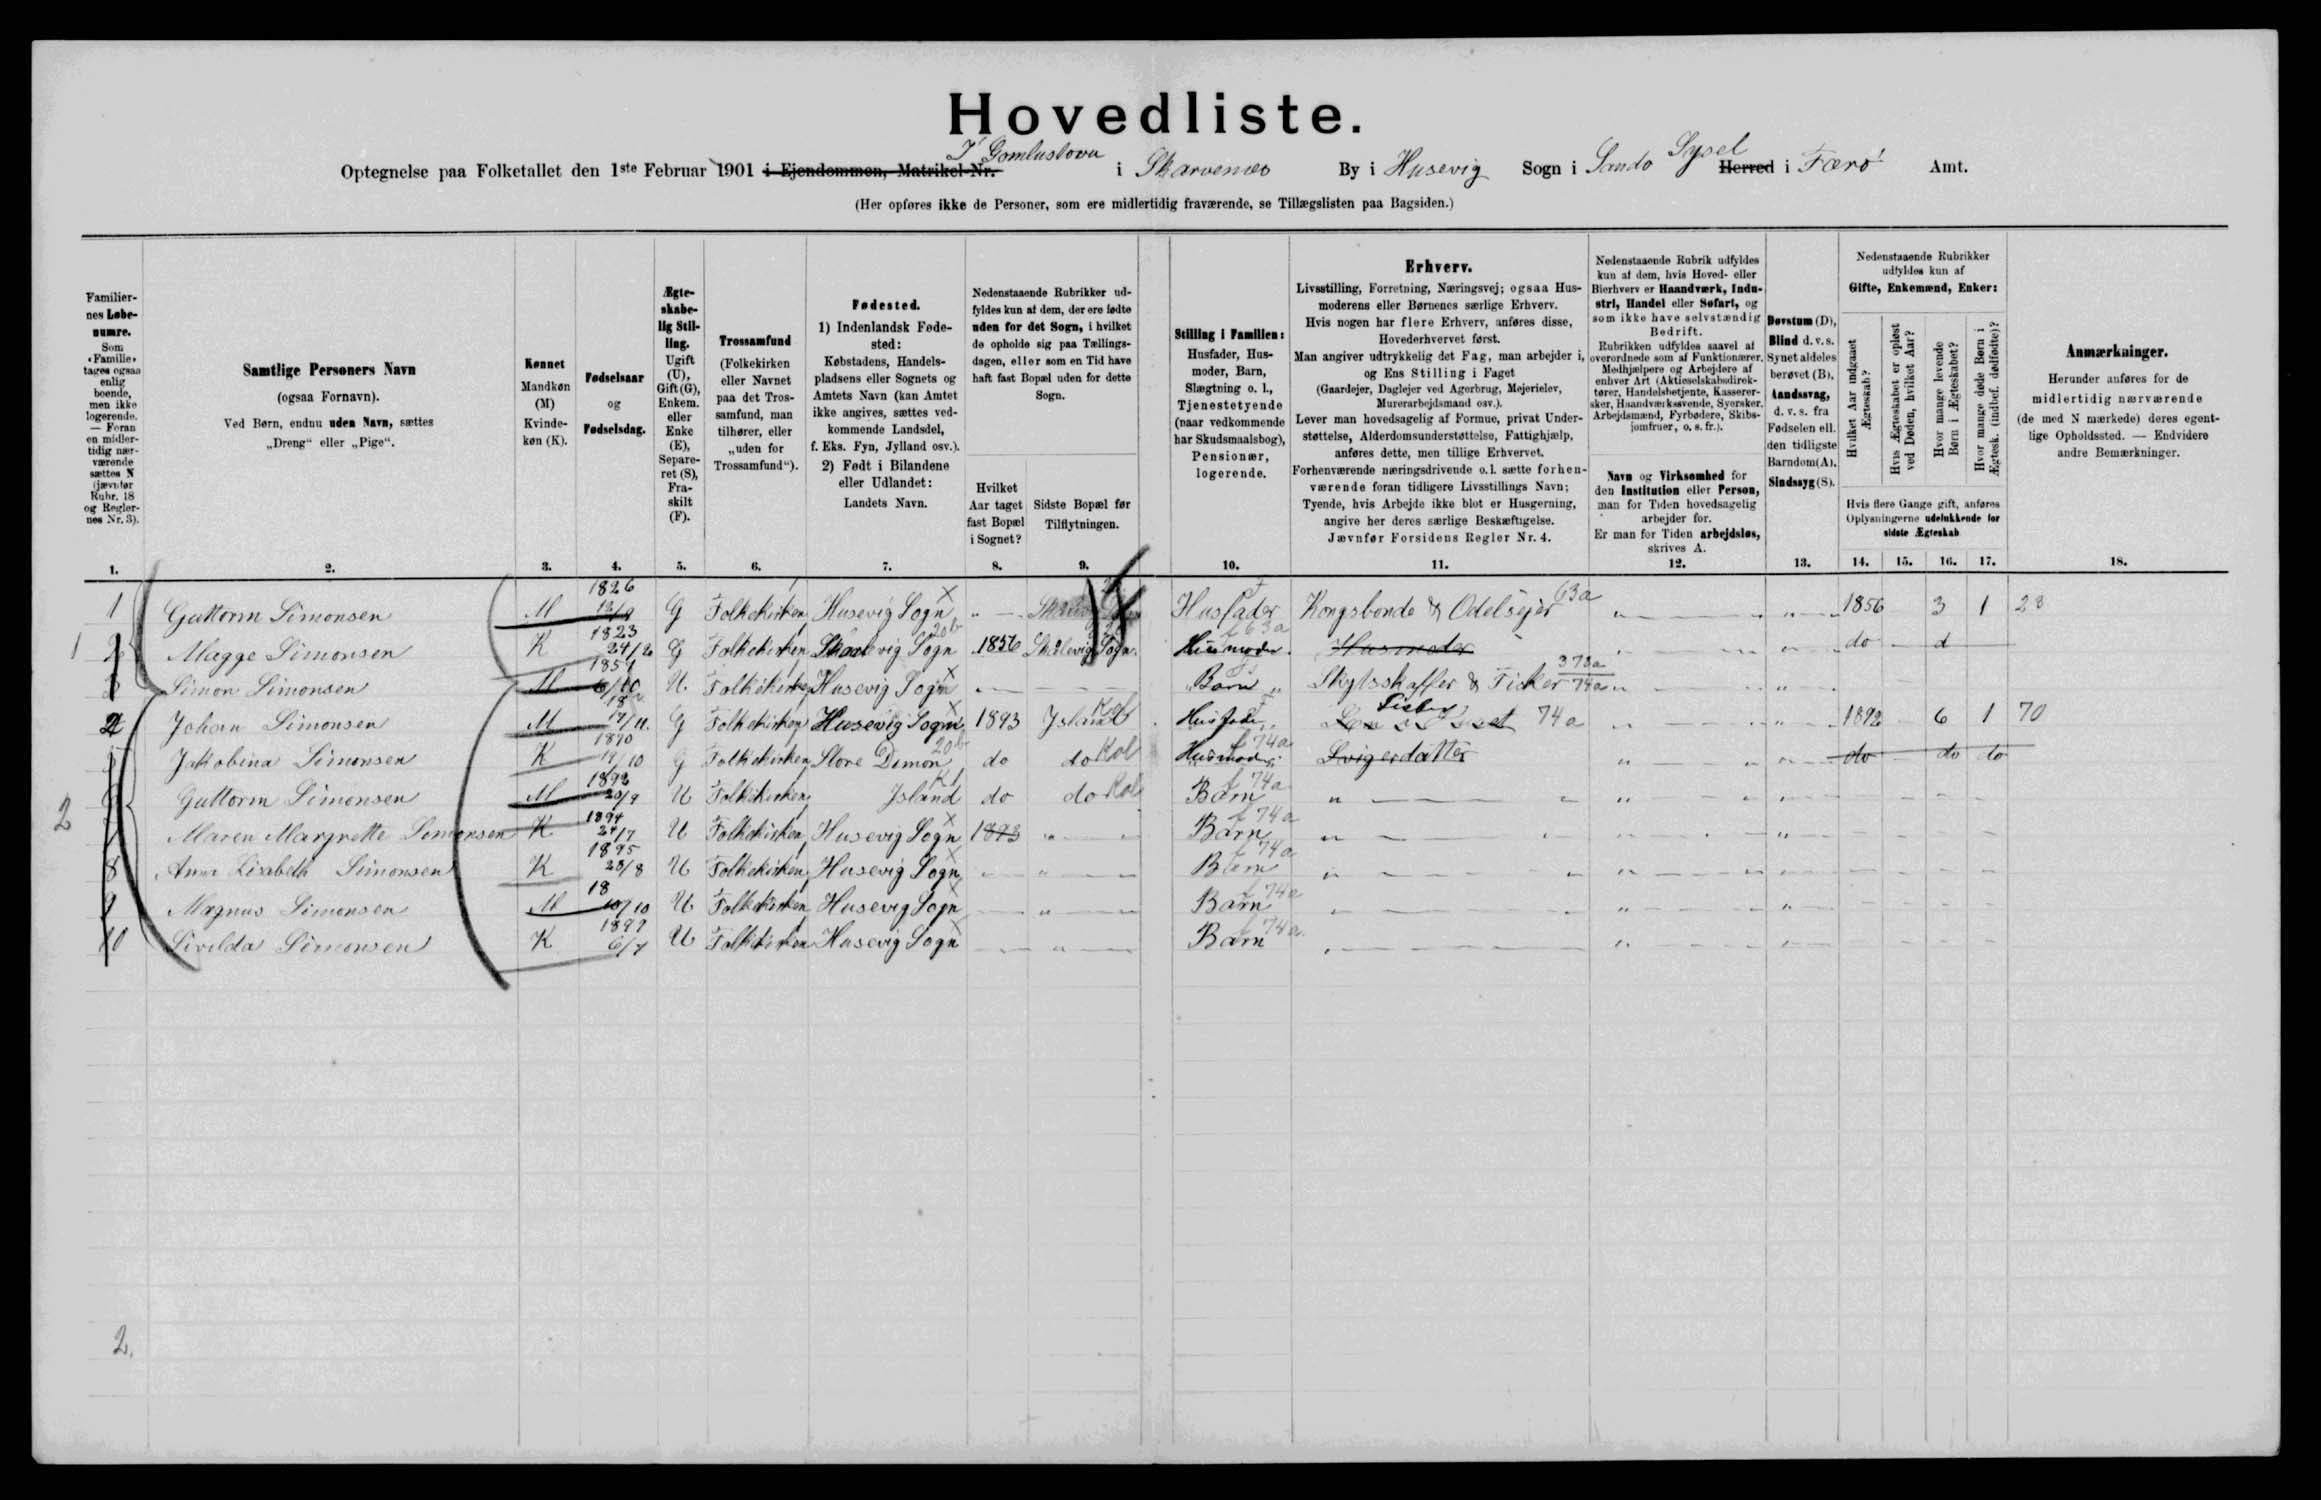 Hovedliste.
I Gomlustovu
Optegnelse paa Folketallet den 1ste Februar 1901 i Ejendommen, Matrikel-Nr. i Skarvenes By i Husevig Sogn i Sando Sysel Herred i Færø Amt.
(Her opføres ikke de Personer, som ere midlertidig fraværende, se Tillægslisten paa Bagsiden.)
Familiernes Løbenumre. Som «Familie» tages ogsaa enlig boende, men ikke logerende. — Foran en midlertidig nærværende sættes N (jævnfør Rubr. 18 og Reglernes Nr. 3).
Samtlige Personers Navn
(ogsaa Fornavn).
Ved Børn, endnu uden Navn, sættes
„Dreng“ eller „Pige“.
Kønnet
Mandkøn (M)
Kvindekøn (K).
Fødselsaar
og
Fødselsdag.
Ægteskabelig Stilling.
Ugift (U), Gift (G), Enkem. eller Enke (E), Separeret (S), Fraskilt (F).
Trossamfund
(Folkekirken eller Navnet paa det Trossamfund, man tilhører, eller „uden for Trossamfund“).
Fødested.
1) Indenlandsk Fødested:
Købstadens, Handelspladsens eller Sognets og Amtets Navn (kan Amtet ikke angives, sættes vedkommende Landsdel, f. Eks. Fyn, Jylland osv.).
2) Født i Bilandene eller Udlandet:
Landets Navn.
Nedenstaaende Rubrikker udfyldes kun af dem, der ere fødte uden for det Sogn, i hvilket de opholde sig paa Tællingsdagen, eller som en Tid have haft fast Bopæl uden for dette Sogn.
Hvilket Aar taget fast Bopæl i Sognet?
Sidste Bopæl før Tilflytningen.
Stilling i Familien:
Husfader, Husmoder, Barn, Slægtning o. l., Tjenestetyende (naar vedkommende har Skudsmaalsbog), Pensionær, logerende.
Erhverv.
Livsstilling, Forretning, Næringsvej; ogsaa Husmoderens eller Børnenes særlige Erhverv.
Hvis nogen har flere Erhverv, anføres disse, Hovederhvervet først.
Man angiver udtrykkelig det Fag, man arbejder i, og Ens Stilling i Faget
(Gaardejer, Daglejer ved Agerbrug, Mejerielev, Murerarbejdsmand osv.).
Lever man hovedsagelig af Formue, privat Understøttelse, Alderdomsunderstøttelse, Fattighjælp, anføres dette, men tillige Erhvervet.
Forhenværende næringsdrivende o. l. sætte forhenværende foran tidligere Livsstillings Navn;
Tyende, hvis Arbejde ikke blot er Husgerning, angive her deres særlige Beskæftigelse.
Jævnfør Forsidens Regler Nr. 4.
Nedenstaaende Rubrik udfyldes kun af dem, hvis Hoved- eller Bierhverv er Haandværk, Industri, Handel eller Søfart, og som ikke have selvstændig Bedrift.
Rubrikken udfyldes saavel af overordnede som af Funktionærer, Medhjælpere og Arbejdere af enhver Art (Aktieselskabsdirektører, Handelsbetjente, Kasserersker, Haandværkssvende, Syersker, Arbejdsmænd, Fyrbødere, Skibsjomfruer, o. s. fr.).
Navn og Virksomhed for den Institution eller Person, man for Tiden hovedsagelig arbejder for.
Er man for Tiden arbejdsløs, skrives A.
Døvstum (D), Blind d. v. s. Synet aldeles berøvet (B), Aandssvag, d. v. s. fra Fødselen ell. den tidligste Barndom (A), Sindssyg (S).
Nedenstaaende Rubrikker udfyldes kun af Gifte, Enkemænd, Enker:
Hvilket Aar indgaaet Ægteskab?
Hvis Ægteskabet er opløst ved Døden, hvilket Aar?
Hvor mange levende Børn i Ægteskabet?
Hvor mange døde Børn i Ægtesk. (indbef. dødfødte)?
Hvis flere Gange gift, anføres Oplysningerne udelukkende for sidste Ægteskab
Anmærkninger.
Herunder anføres for de midlertidig nærværende (de med N mærkede) deres egentlige Opholdssted. — Endvidere andre Bemærkninger.
1. 2. 3. 4. 5. 6. 7. 8. 9. 10. 11. 12. 13. 14. 15. 16. 17. 18.
1 Guttorm Simonsen M 1826 G Folkekirken Husevig Sogn Husfader Kongsbonde & Odelsejer 63a 1856 3 1 28
2 Magge Simonsen K 1823 24/12 G Folkekirken Skaalevig Sogn 20b 1856 Skålevig Sogn Husmoder f 63a Husmoder do d
Simon Simonsen M 6/10 U Folkekirken Husevig Sogn Barn Skytsskaffer & Fisker 74a
Johan Simonsen M 19/11 G Folkekirken Husevig Sogn 1893 Island Husfader Fisker 74a 1892 6 1 70
Jakobina Simonsen K 1870 19/10 G Folkekirken Store Dimon 20b do do Kol Husmoder f 74a Svigerdatter do do do
Guttorm Simonsen M 1892 20/9 U Folkekirken Island do do Kol Barn f 74a
Maren Margrette Simonsen K 1894 24/7 U Folkekirken Husevig Sogn 1893 Barn f 74a
8 Anna Lisabeth Simonsen K 1895 28/8 U Folkekirken Husevig Sogn Barn f 74a
9 Magnus Simonsen M 18 10/10 U Folkekirken Husevig Sogn Barn f 74a
10 Sivilda Simonsen K 1899 6/7 U Folkekirken Husevig Sogn Barn f 74a
2.